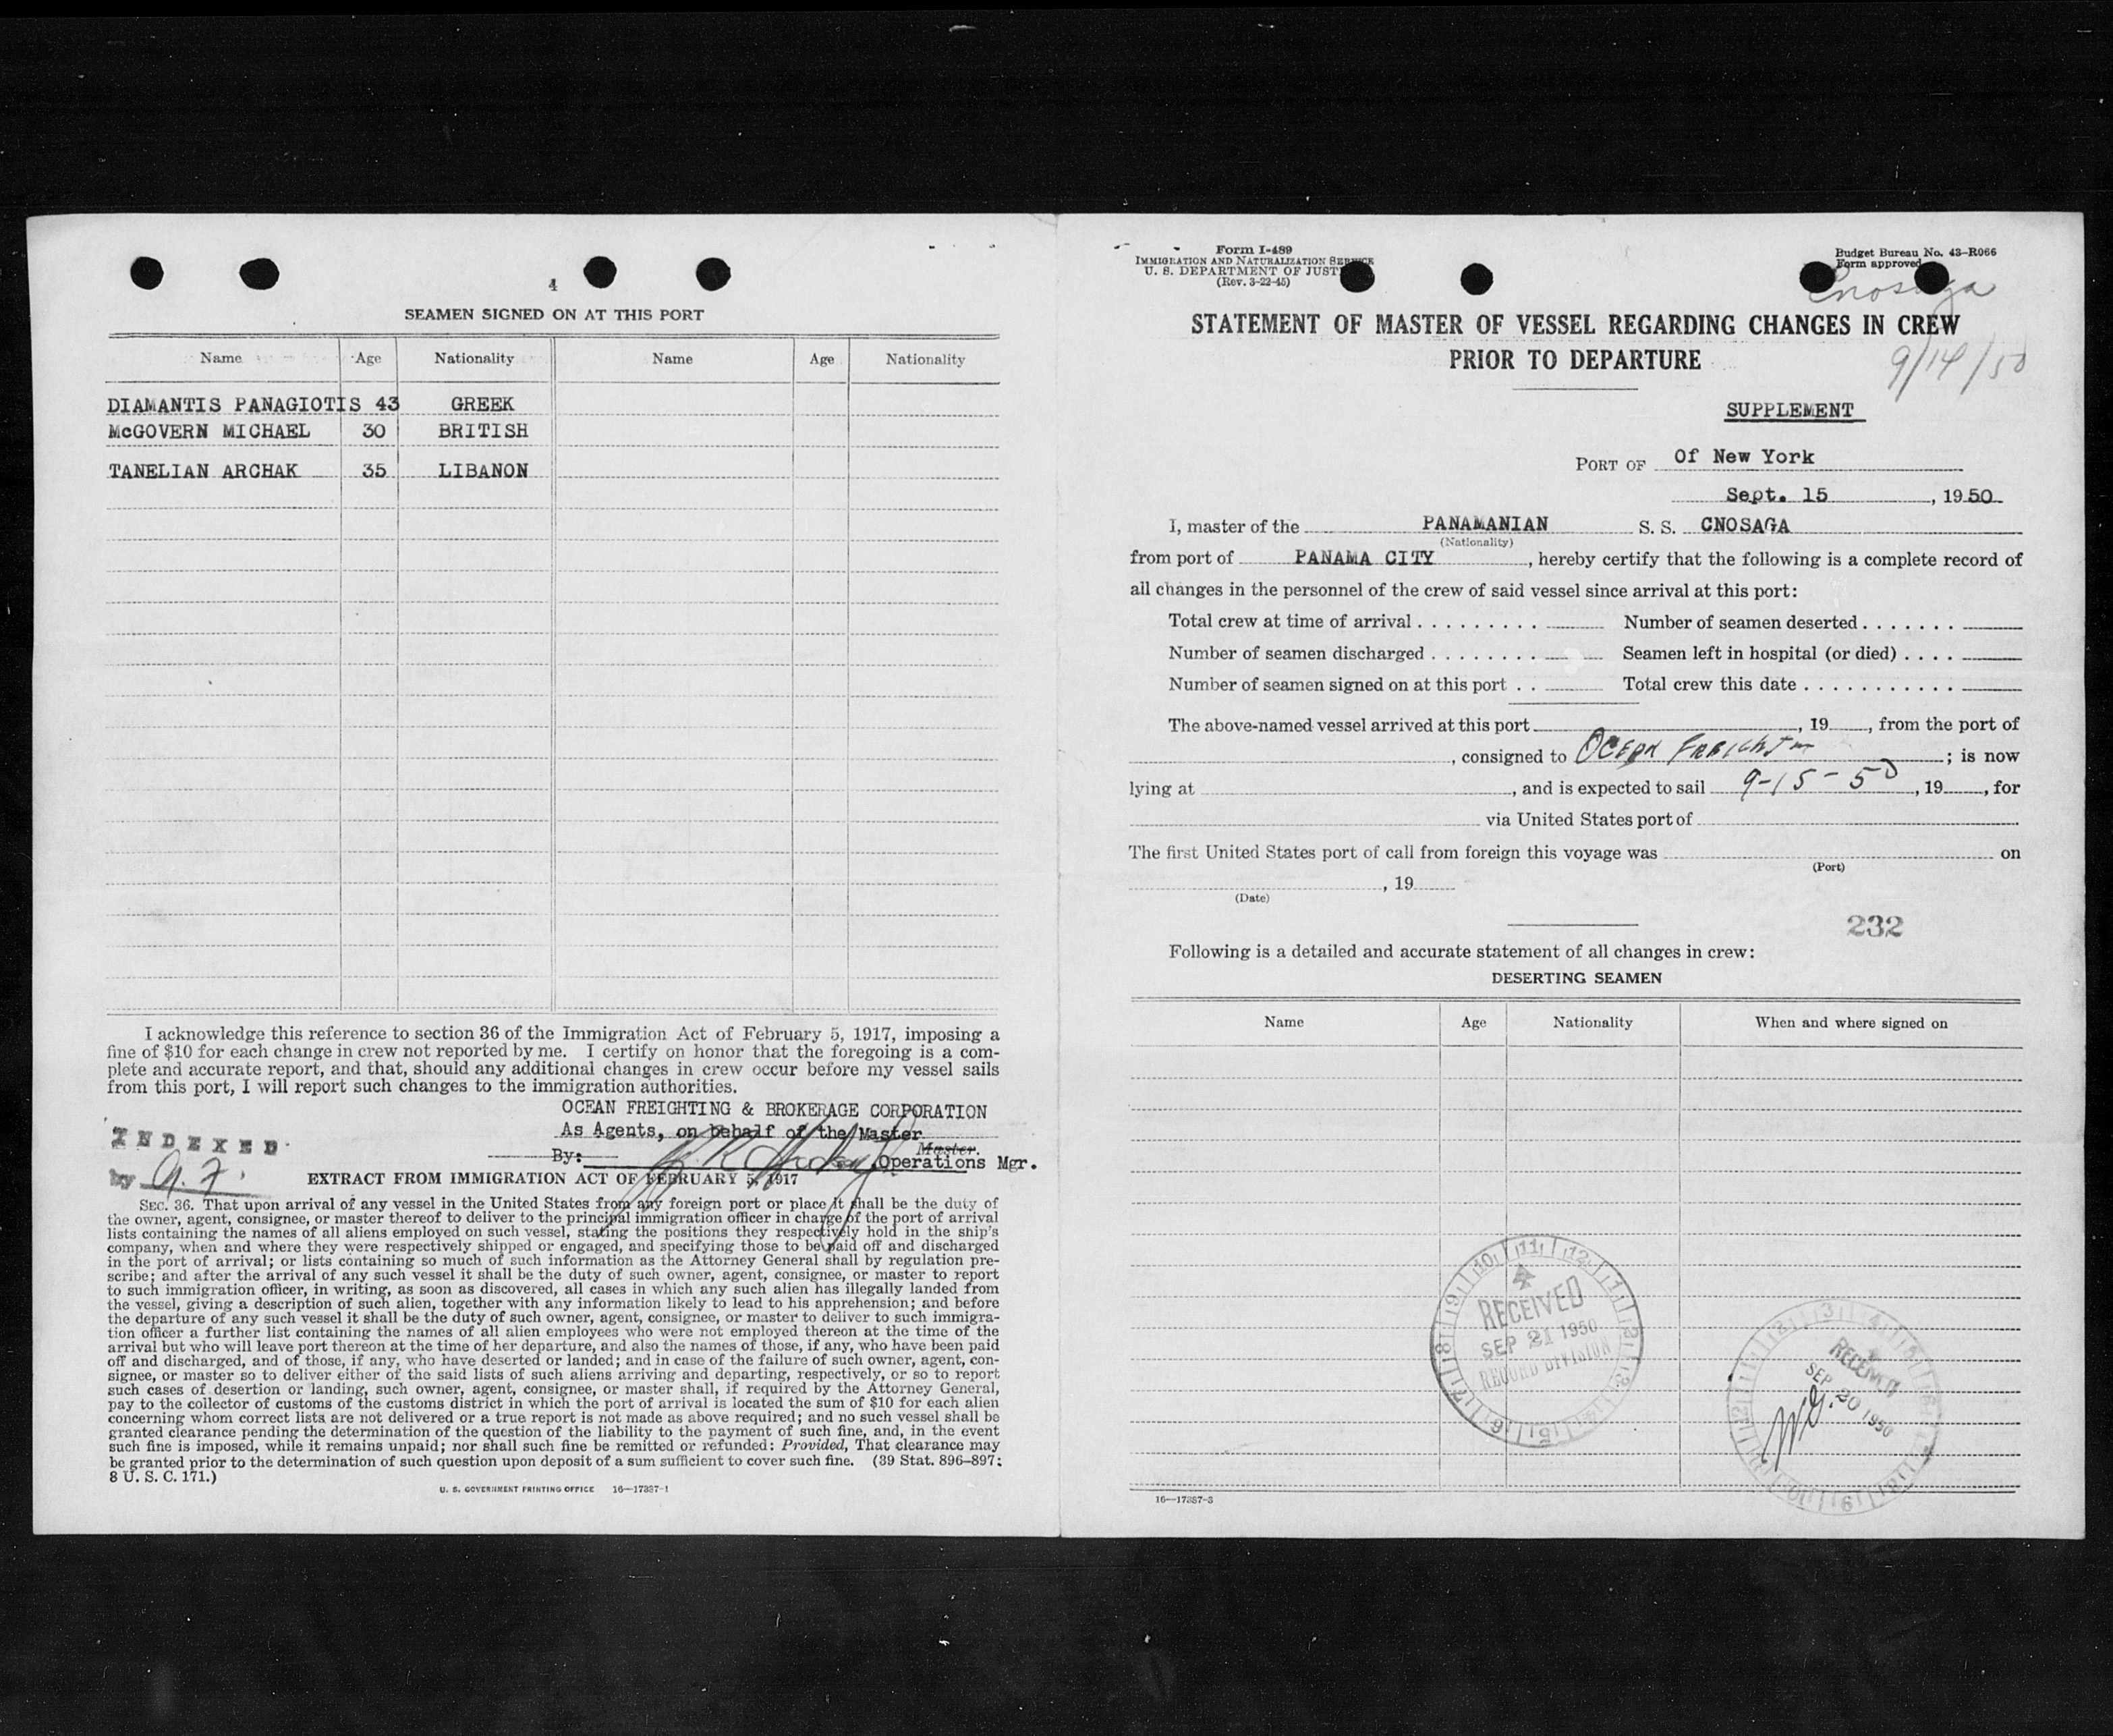 4
SEAMEN SIGNED ON AT THIS PORT
Name Age Nationality Name Age Nationality
DIAMANTIS PANAGIOTIS 43 GREEK
McGOVERN MICHAEL 30 BRITISH
TANELIAN ARCHAK 35 LIBANON
I acknowledge this reference to section 36 of the Immigration Act of February 5, 1917, imposing a
fine of $10 for each change in crew not reported by me. I certify on honor that the foregoing is a com-
plete and accurate report, and that, should any additional changes in crew occur before my vessel sails
from this port, I will report such changes to the immigration authorities.
OCEAN FREIGHTING & BROKERAGE CORPORATION
As Agents, on behalf of the Master
Master.
By: Operations Mgr.
INDEXED
by
EXTRACT FROM IMMIGRATION ACT OF FEBRUARY 5, 1917
SEC. 36. That upon arrival of any vessel in the United States from any foreign port or place it shall be the duty of
the owner, agent, consignee, or master thereof to deliver to the principal immigration officer in charge of the port of arrival
lists containing the names of all aliens employed on such vessel, stating the positions they respectively hold in the ship's
company, when and where they were respectively shipped or engaged, and specifying those to be paid off and discharged
in the port of arrival; or lists containing so much of such information as the Attorney General shall by regulation pre-
scribe; and after the arrival of any such vessel it shall be the duty of such owner, agent, consignee, or master to report
to such immigration officer, in writing, as soon as discovered, all cases in which any such alien has illegally landed from
the vessel, giving a description of such alien, together with any information likely to lead to his apprehension; and before
the departure of any such vessel it shall be the duty of such owner, agent, consignee, or master to deliver to such immigra-
tion officer a further list containing the names of all alien employees who were not employed thereon at the time of the
arrival but who will leave port thereon at the time of her departure, and also the names of those, if any, who have been paid
off and discharged, and of those, if any, who have deserted or landed; and in case of the failure of such owner, agent, con-
signee, or master so to deliver either of the said lists of such aliens arriving and departing, respectively, or so to report
such cases of desertion or landing, such owner, agent, consignee, or master shall, if required by the Attorney General,
pay to the collector of customs of the customs district in which the port of arrival is located the sum of $10 for each alien
concerning whom correct lists are not delivered or a true report is not made as above required; and no such vessel shall be
granted clearance pending the determination of the question of the liability to the payment of such fine, and, in the event
such fine is imposed, while it remains unpaid; nor shall such fine be remitted or refunded: Provided, That clearance may
be granted prior to the determination of such question upon deposit of a sum sufficient to cover such fine. (39 Stat. 896–897;
8 U. S. C. 171.)
U. S. GOVERNMENT PRINTING OFFICE 16—17387-1
Form I-489
IMMIGRATION AND NATURALIZATION SERVICE
U. S. DEPARTMENT OF JUST
(Rev. 3-22-45)
Budget Bureau No. 43–R066
Form approved
Cnosaga
STATEMENT OF MASTER OF VESSEL REGARDING CHANGES IN CREW
PRIOR TO DEPARTURE
9/14/50
SUPPLEMENT
PORT OF Of New York
Sept. 15, 1950
I, master of the PANAMANIAN S. S. CNOSAGA
(Nationality)
from port of PANAMA CITY, hereby certify that the following is a complete record of
all changes in the personnel of the crew of said vessel since arrival at this port:
Total crew at time of arrival Number of seamen deserted
Number of seamen discharged Seamen left in hospital (or died)
Number of seamen signed on at this port Total crew this date
The above-named vessel arrived at this port , 19 , from the port of
, consigned to Ocean Freight ; is now
lying at , and is expected to sail 9-15-50, 19 , for
via United States port of
The first United States port of call from foreign this voyage was on
(Port)
, 19
(Date)
232
Following is a detailed and accurate statement of all changes in crew:
DESERTING SEAMEN
Name Age Nationality When and where signed on
RECEIVED
SEP 21 1950
RECORD DIVISION
RECEIVED
SEP 20 1950
16—17387-3